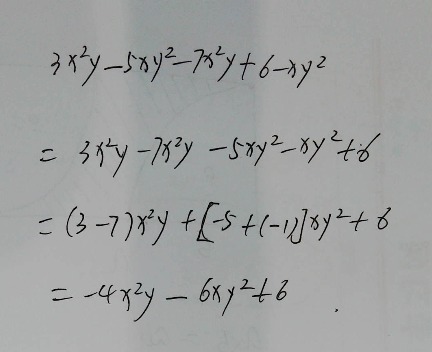 3x²y-5xy²-7x²y+6-xy²
= 3x²y-7x²y-5xy²-xy²+6
=(3-7)x²y+[-5+(-1)]xy²+6
=-4x²y-6xy²+6